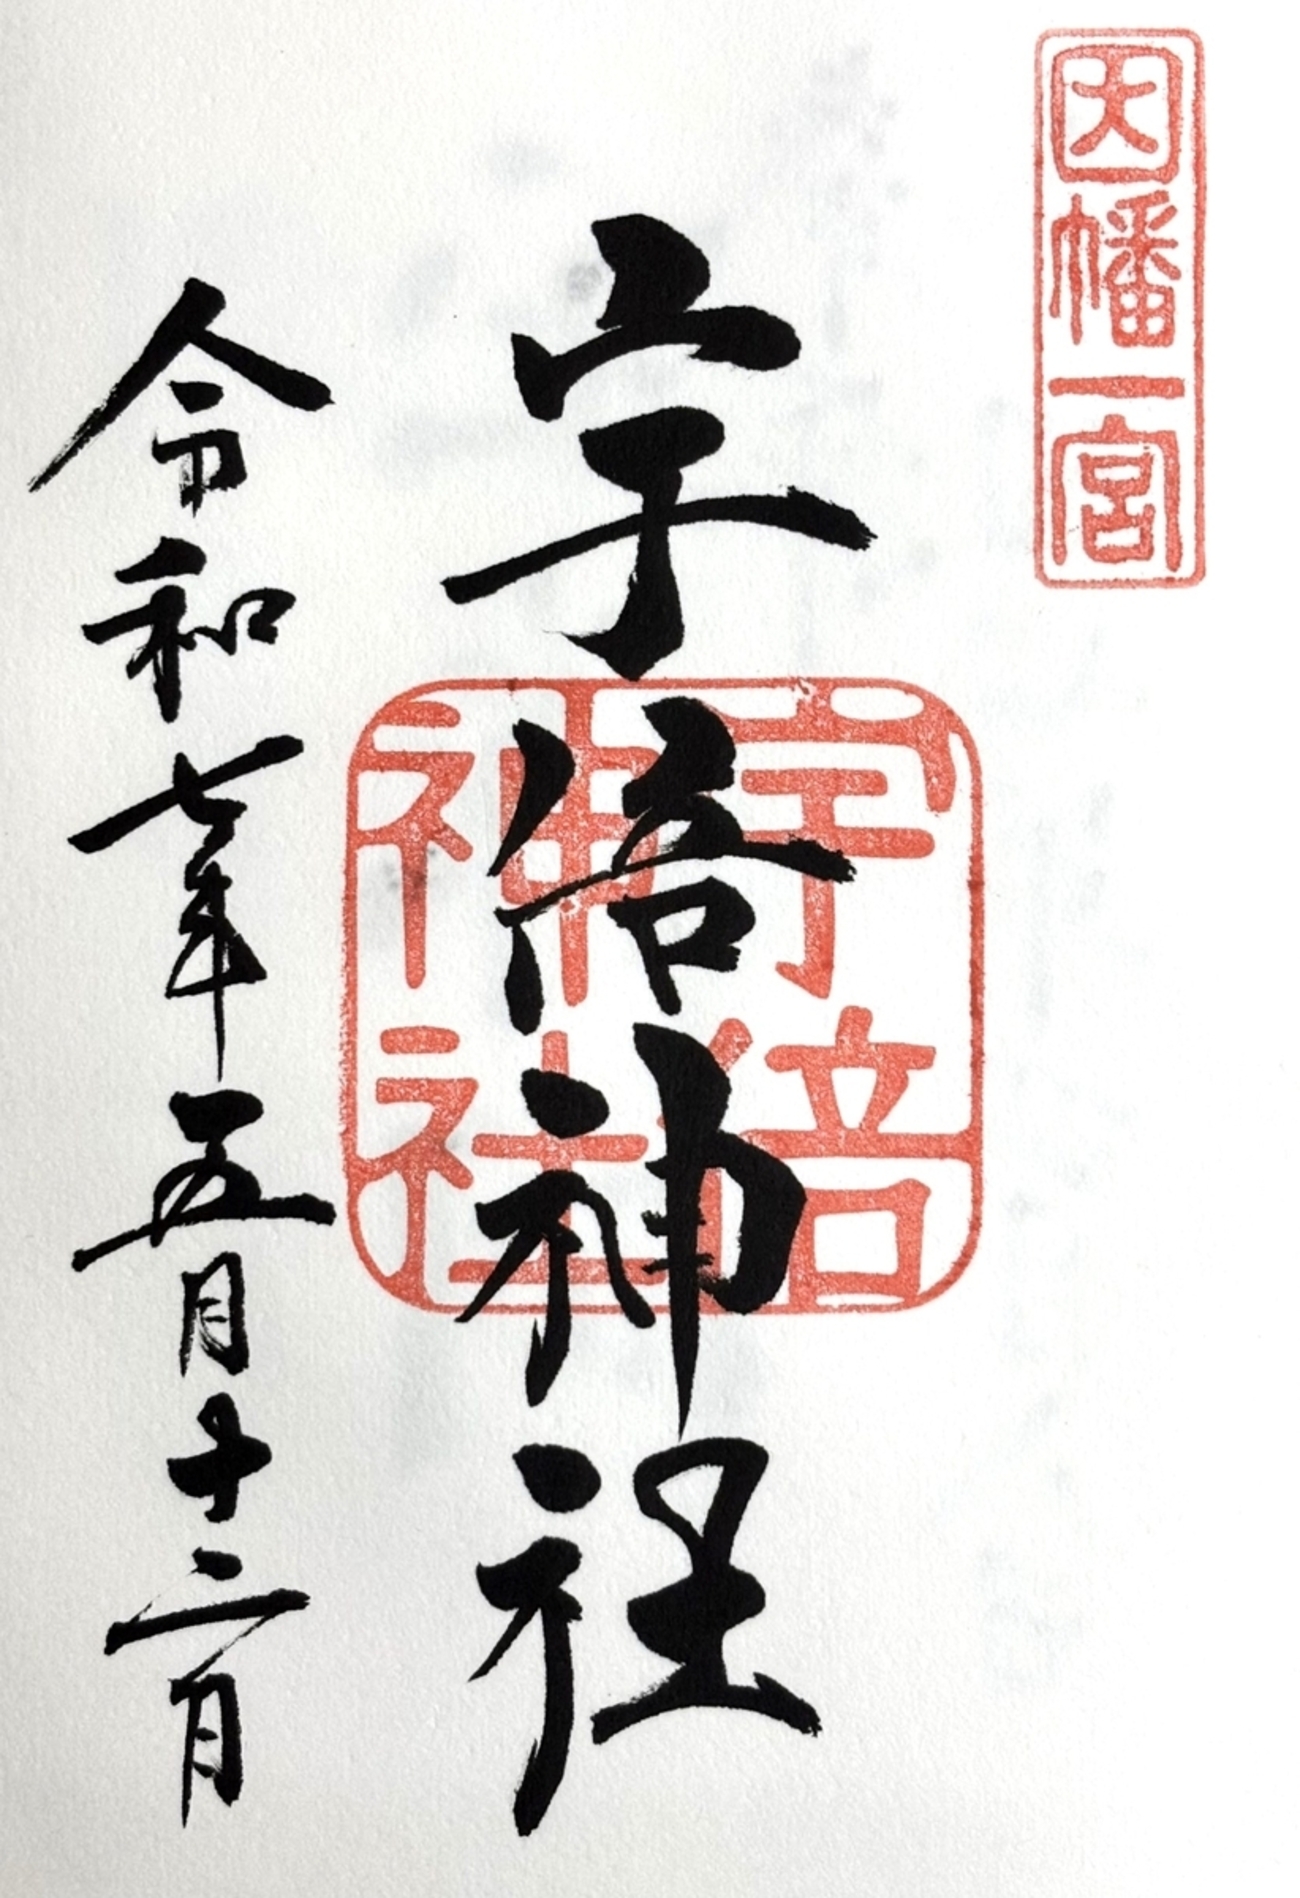 因幡一宮
宇倍神社
宇倍
神社
令和七年五月十二日